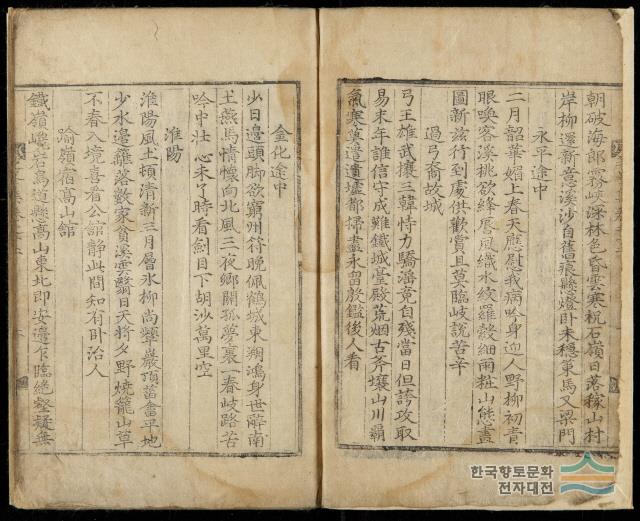 朝破海郎霧峽深林色昏雲寒祝石嶺日落稼山村
岸柳還新意溪沙自舊痕縣燈卧未穩東馬又梁門
永平途中
二月韶華媚上春天應慰我病吟身迎人野柳初青
眼喚客溪桃欲絳唇風織水紋羅縠細雨粧山態畫
圖新茲行到處供歡賞且莫臨岐說苦辛
過弓裔故城
弓王雄武攘三韓恃力驕滛竟自殘當日但誇攻取
易末年誰信守成難鐵城臺殿荒烟古斧壤山川霸
氣寒莫遣遺墟都掃盡永留殷鑑後人看
金化途中
少日邊頭脚欲窮州符晚佩鶴城東朔鴻身世辭南
土燕馬情懷向北風三夜鄉關孤夢裏一春岐路苦
吟中壮心未了時看劍目下胡沙萬里空
淮陽
淮陽風土頓清新三月層氷柳尚顰嚴頂菑畬平地
少水邊籬落數家貧溪雲翳日天將夕野燒籠山草
不春入境喜看公館静此間知有卧治人
踰嶺宿高山館
鐵嶺巉岩鳥道縣高山東北即安邊乍臨絶壑疑無
한국향토문화
전자대전